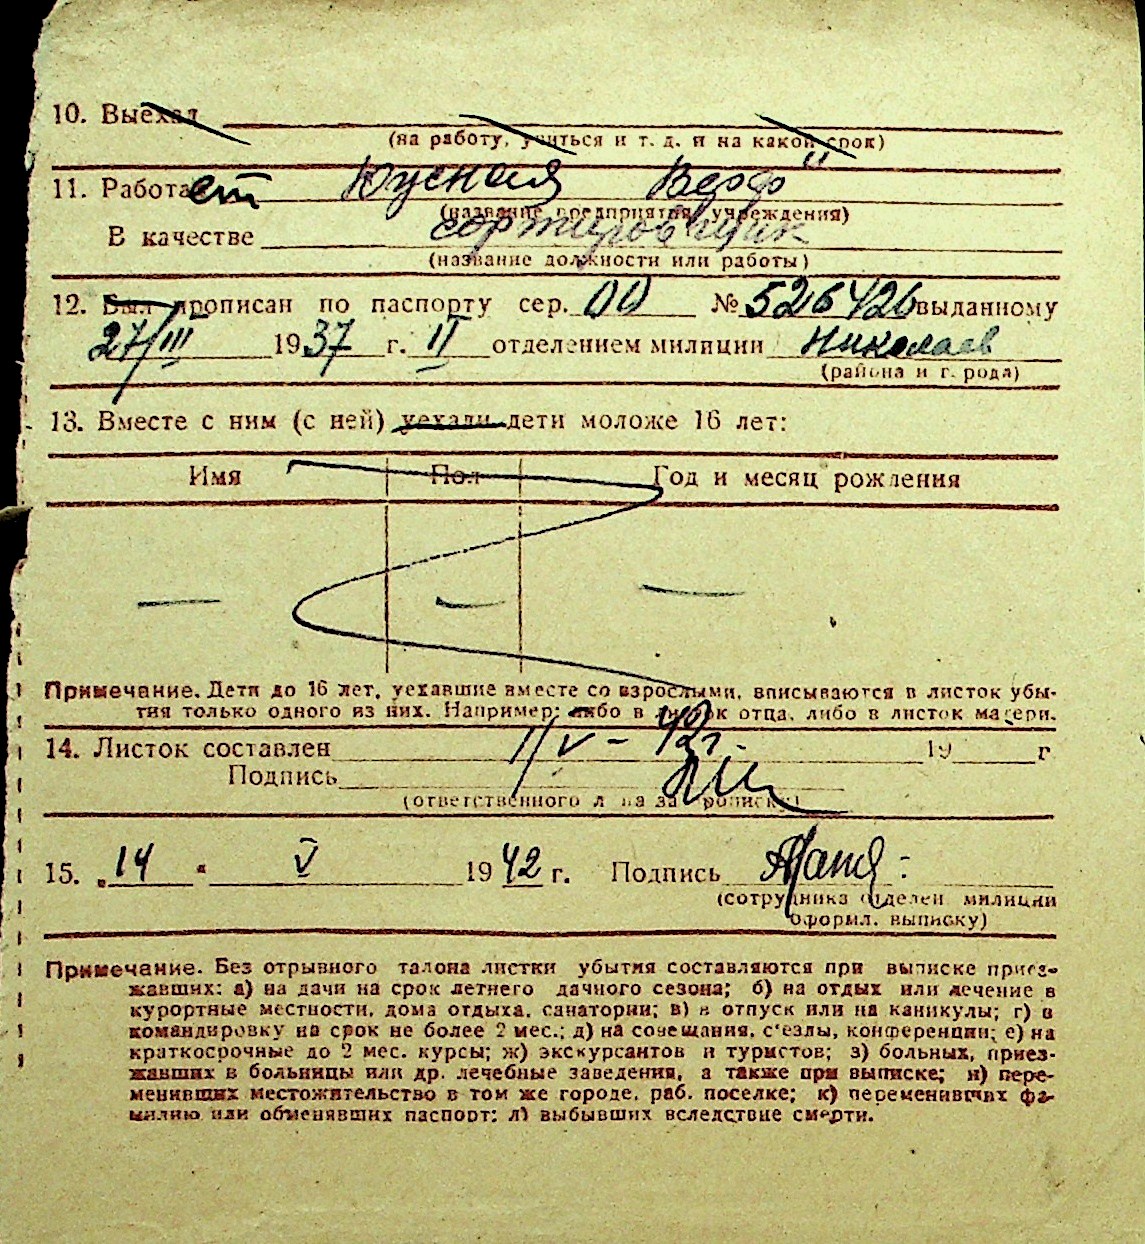 10. Выехал
(на работу, учиться и т. д. и на какой срок)
11. Работает Южная Верфь"
(название предприятия, учреждения)
В качестве сортировщик
(название должности или работы)
12. Был прописан по паспорту сер. № 526426 выданному
27/III 1937 г. II отделением милиции Николаев
(района и города)
13. Вместе с ним (с ней) уехали дети моложе 16 лет:
Имя Пол Год и месяц рождения
— — —
Примечание. Дети до 16 лет, уехавшие вместе со взрослыми, вписываются в листок убы-
тия только одного из них. Например: либо в листок отца, либо в листок матери.
14. Листок составлен 1/V – 42г. 19 г
Подпись
(ответственного л на за прописку)
15. „14 " V 1942 г. Подпись
(сотрудника отделен милиции
оформл. выписку)
Примечание. Без отрывного талона листки убытия составляются при выписке приез-
жавших: а) на дачи на срок летнего дачного сезона; б) на отдых или лечение в
курортные местности, дома отдыха, санатории; в) в отпуск или на каникулы; г) в
командировку на срок не более 2 мес.; д) на совещания, с'езды, конференции; е) на
краткосрочные до 2 мес. курсы; ж) экскурсантов и туристов; з) больных, приез-
жавших в больницы или др. лечебные заведения, а также при выписке; и) пере-
менивших местожительство в том же городе, раб. поселке; к) переменивших фа-
милию или обменявших паспорт; л) выбывших вследствие смерти.